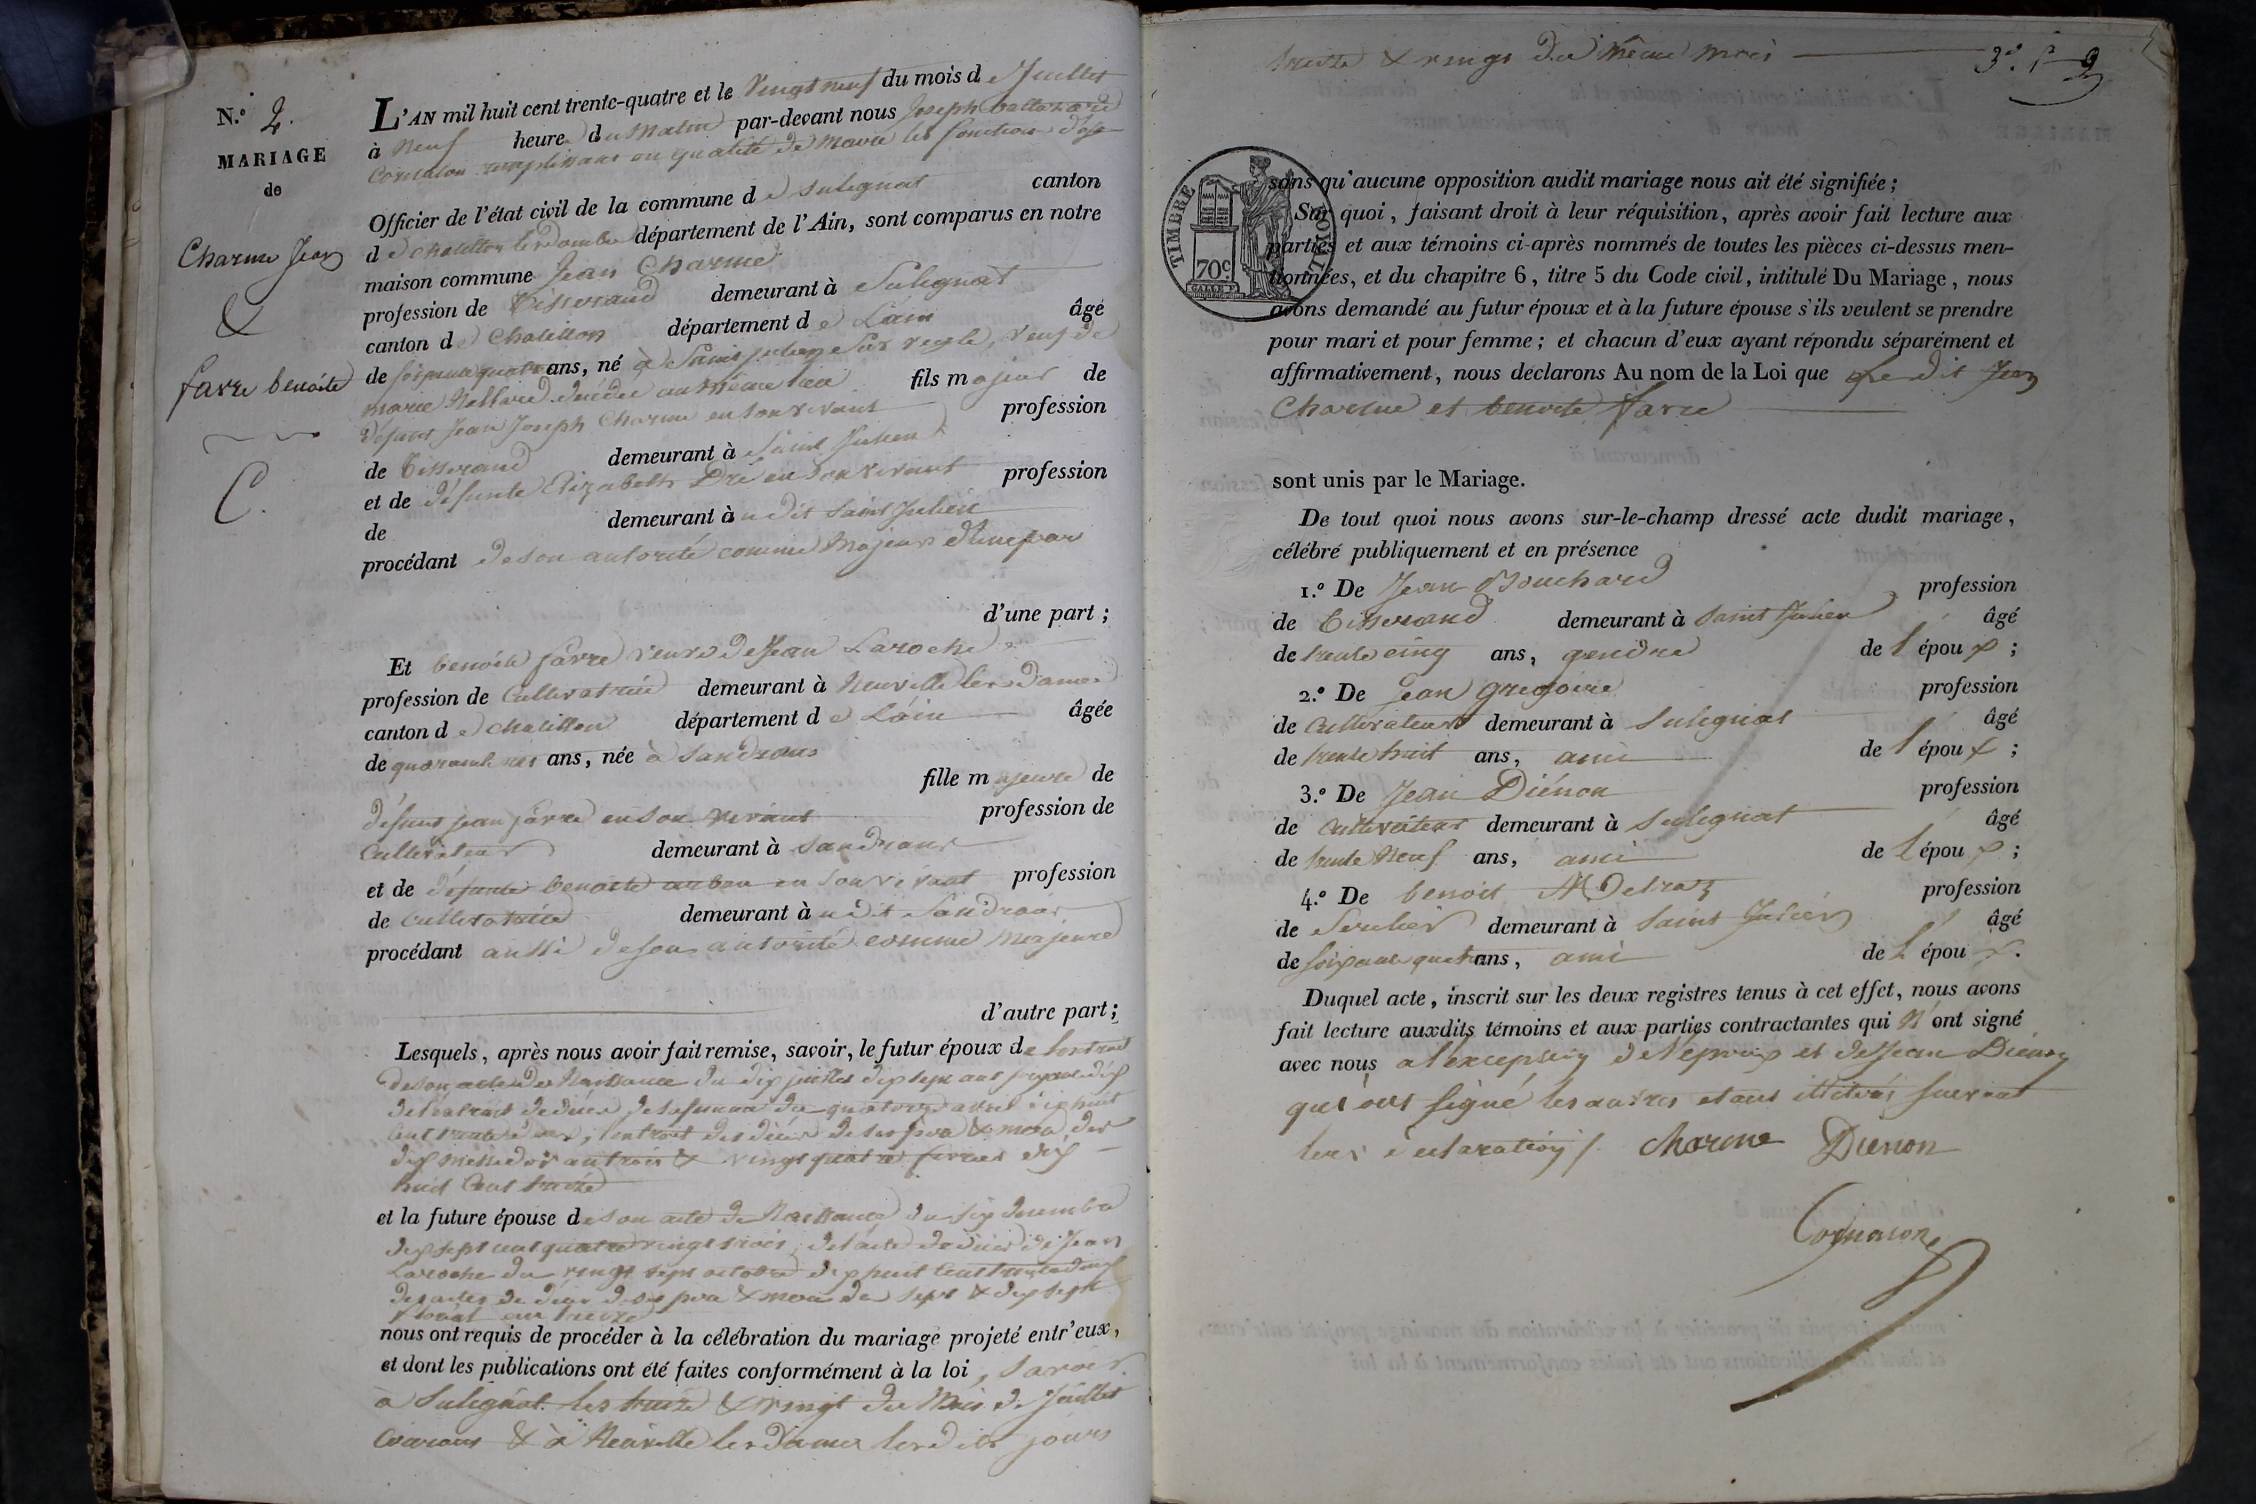 N.º 2.
MARIAGE
de
Charme Jean
&
favre benoite
C.
L'AN mil huit cent trente-quatre et le vingt neuf du mois de Juillet
à neuf heure du matin par-devant nous Joseph baltazard
Cormalon remplissant en qualité de Maire les fonctions d'
Officier de l'état civil de la commune de Sulignat canton
de chatillon les dombes département de l'Ain, sont comparus en notre
maison commune Jean Charme
profession de Tisserand demeurant à Sulignat
canton de Chatillon département de L'ain âgé
de soixante quatre ans, né à Saint julien sur veyle, veuf de
marie décédée au même lieu fils majeur de
défunt Jean Joseph Charme en son vivant profession
de Tisserand demeurant à Saint Julien
et de défunte Elizabeth Dré en son vivant profession
de demeurant à udit Saint Julien
procédant de son autorité comme Majeur d'une part
d'une part ;
Et benoite favre veuve de Jean Laroche
profession de Cultivatrice demeurant à Neuville les Dames
canton de chatillon département de L'ain âgée
de quarante ans, née à Sandrans
fille majeure de
défunt jean favre en son vivant profession de
Cultivateur demeurant à Sandrans
et de défunte benoite en son vivant profession
de Cultivatrice demeurant à udit Sandrans
procédant aussi de son autorité comme Majeure
d'autre part ;
Lesquels, après nous avoir fait remise, savoir, le futur époux de lextrait
de son acte de Naissance du dix juillet dix sept cent soixante dix
de lextrait de décès de sa femme du quatorze avril dix huit
Cent trente deux, lextrait des décès de ses père & mère des
dix Messidor an trois & vingt quatre février dix
huit Cent treize
et la future épouse de son acte de Naissance du six décembre
dix sept cent quatre vingt trois, de l'acte de décès de Jean
Laroche du vingt sept octobre dix huit Cent trente deux
des actes de décès de ses père & mère des sept & dix sept
floréal an treize
nous ont requis de procéder à la célébration du mariage projeté entr'eux,
et dont les publications ont été faites conformément à la loi, savoir
à Sulignat les treize & vingt du Mois de Juillet
Courant & à Neuville les Dames les dits jours
treize & vingt du même mois 3.e f.t 9
TIMBRE ROYAL
70c.
sans qu'aucune opposition audit mariage nous ait été signifiée ;
Sur quoi, faisant droit à leur réquisition, après avoir fait lecture aux
parties et aux témoins ci-après nommés de toutes les pièces ci-dessus men-
tionnées, et du chapitre 6, titre 5 du Code civil, intitulé Du Mariage, nous
avons demandé au futur époux et à la future épouse s'ils veulent se prendre
pour mari et pour femme ; et chacun d'eux ayant répondu séparément et
affirmativement, nous déclarons Au nom de la Loi que que dit Jean
Charme et benoite favre
sont unis par le Mariage.
De tout quoi nous avons sur-le-champ dressé acte dudit mariage,
célébré publiquement et en présence
1.º De Jean Bouchard profession
de Tisserand demeurant à Saint Julien âgé
de trente cinq ans, gendre de l'époux ;
2.º De Jean gregoire profession
de Cultivateur demeurant à Sulignat âgé
de trente huit ans, ami de l'époux ;
3.º De Jean Diénon profession
de Cultivateur demeurant à Sulignat âgé
de trente Neuf ans, ami de l'époux ;
4.º De benoit profession
de demeurant à Saint Julien âgé
de soixante quatre ans, ami de l'époux.
Duquel acte, inscrit sur les deux registres tenus à cet effet, nous avons
fait lecture auxdits témoins et aux parties contractantes qui N'ont signé
avec nous à l'exception de l'époux et de Jean Diénon
qui ont signé les autres etant illitérés suivant
leurs déclarations /. Charme Diénon